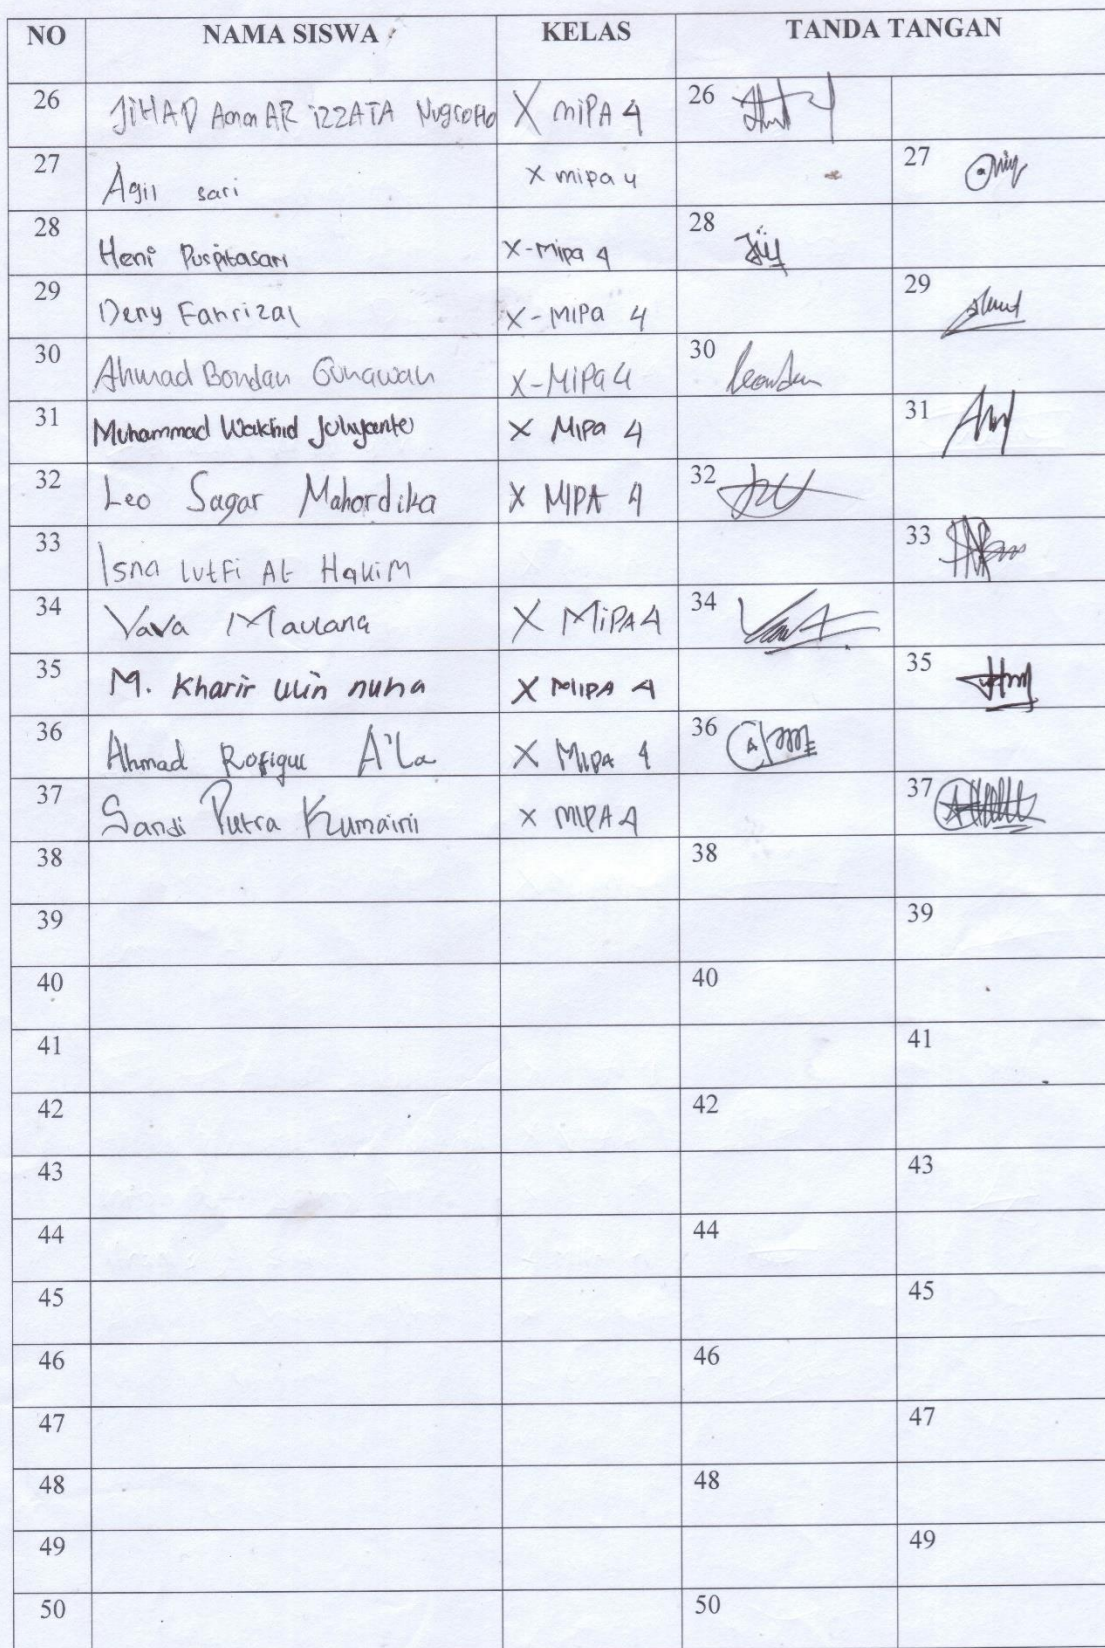 NO NAMA SISWA KELAS TANDA TANGAN
26 JIHAD AmmAR iZZATA NugroHo X miPA 4 26
27 Agil sari X mipa 4 27
28 Heni Puspitasari X-Mipa 4 28
29 Deny Fahrizal X-MIPa 4 29
30 Ahmad Bondan Gunawan X-MiPa 4 30
31 Muhammad Wakhid Julyanto X Mipa 4 31
32 Leo Sagar Mahardika X MIPA 4 32
33 Isna lutFi AL HakiM 33
34 Vava Maulana X MiPA 4 34
35 M. Kharir ulin nuha X MIPA 4 35
36 Ahmad Rofiqul A'La X Mipa 4 36
37 Sandi Putra Kumaini X MIPA 4 37
38 38
39 39
40 40
41 41
42 42
43 43
44 44
45 45
46 46
47 47
48 48
49 49
50 50